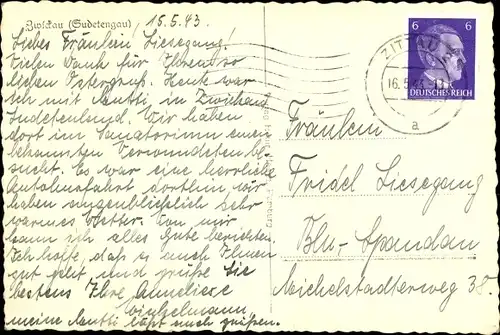 Zwickau (Sudetengau)
15.5.43.
Liebes Fräulein Liesegang!
Vielen Dank für Ihren so
lieben Ostergruß. Heute war
ich mit Mutti in Zwickau
Sudetenland. Wir haben
dort im Sanatorium einen
bekannten Verwundeten be
sucht. Es war eine herrliche
Autobusfahrt dorthin, wir
haben augenblicklich sehr
warmes Wetter. Von mir
kann ich alles Gute berichten.
Ich hoffe, daß es auch Ihnen
gut geht, und grüße Sie
bestens Ihre Anneliese
Winkelmann.
meine Mutti läßt auch grüßen.
6 6
DEUTSCHES REICH
ZITTAU
16.5.43
a
Fräulein
Fridel Liesegang
Bln.-Spandau
Michelstadterweg 38.